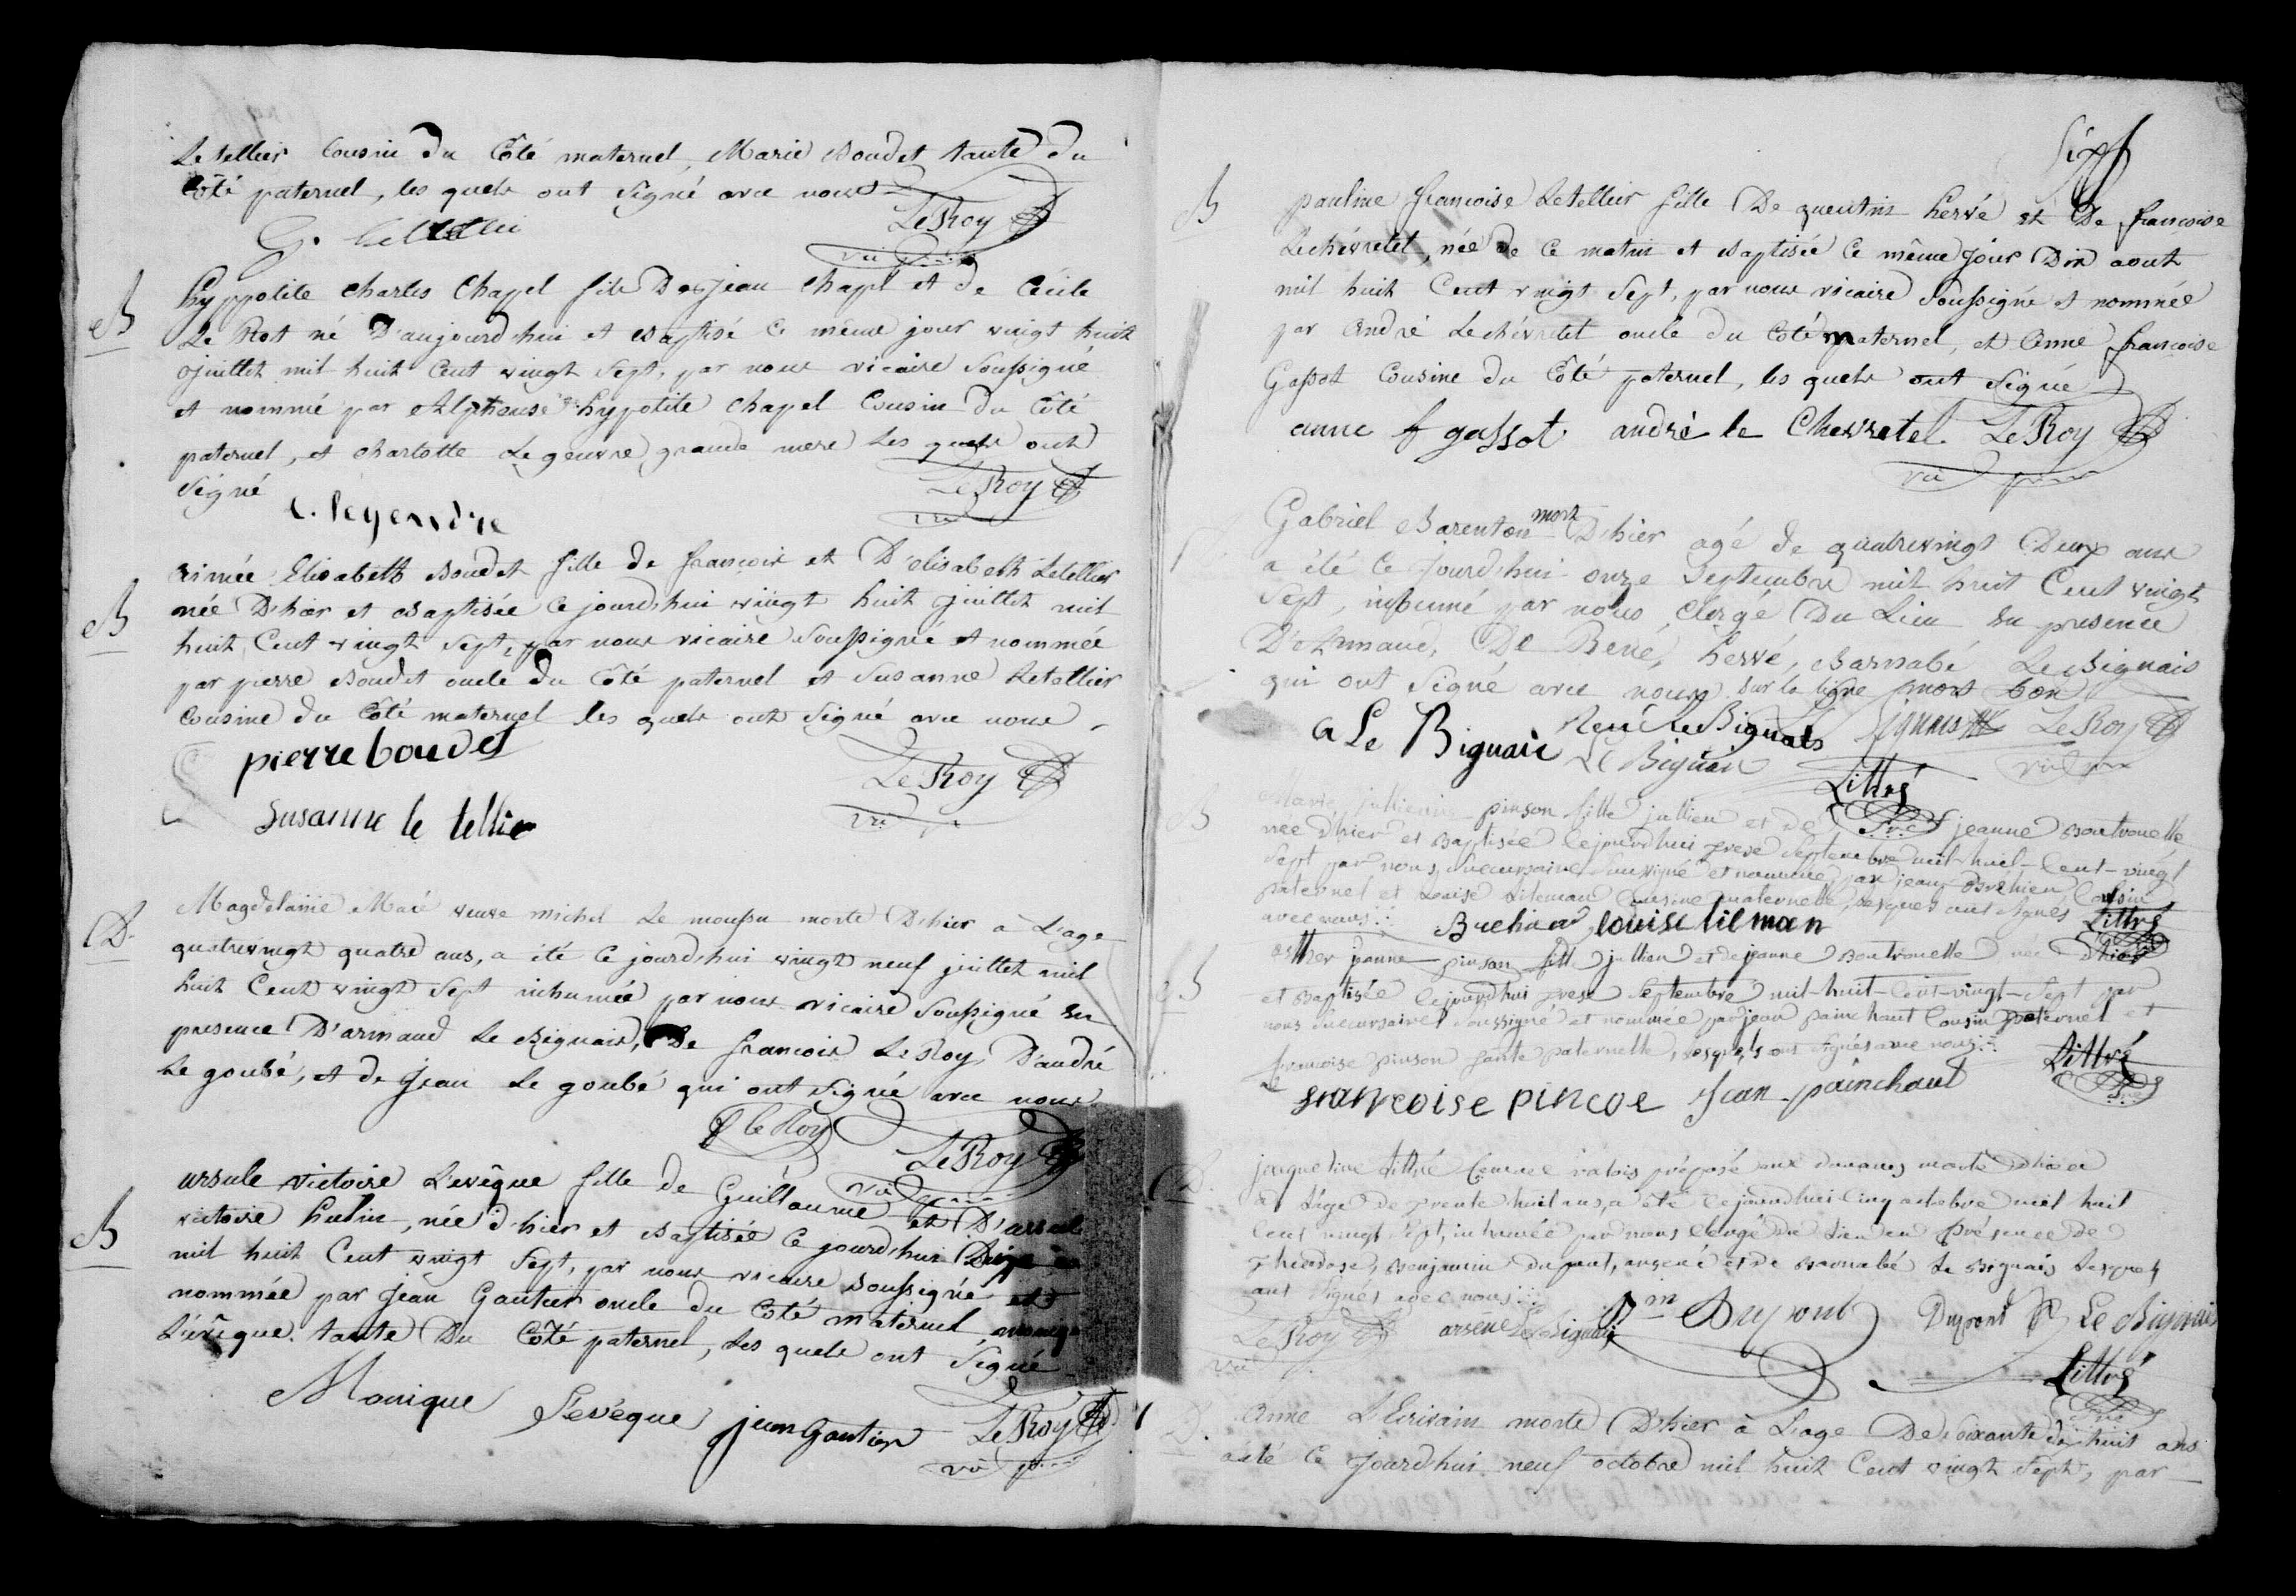 Letellier Cousin du Côté maternel, Marie Boudet tante du
Côté paternel, les quels ont Signé avec nous
LeRoy
G. letellier
vu
B
hyppolite charles Chapel fils De jean Chapel et de Cécile
Le né D'aujourd'hui et Baptisé ce même jour vingt huit
juillet mil huit Cent vingt Sept, par nous vicaire Soussigné
et nommé par Alphonse hyppolite Chapel Cousin du Côté
paternel, et charlotte grande mere Les quels ont
Signé
LeRoy
C. legendre
vu
B
aimée Elisabeth Boudet fille de françois et D'elisabeth Letellier
née D'hier et Baptisée Cejourd'hui vingt huit juillet mil
huit Cent vingt Sept, par nous vicaire Soussigné et nommée
par pierre Boudet oncle du Côté paternel et Susanne Letellier
Cousine du Côté maternel les quels ont Signé avec nous
pierre boudet
LeRoy
vu
Susanne le tellier
D.
Magdelaine veuve michel Le moussu morte D'hier a L'age
quatrevingt quatre ans, a été Ce jourd'hui vingt neuf juillet mil
huit Cent vingt Sept inhumée par nous vicaire Soussigné En
presence D'armand Le Bignais, De francois LeRoy, D'andré
Le goubé, et de Jean Le goubé qui ont Signé avec nous
f le Roy
LeRoy
vu
B
ursule victoire Levêque fille de Guillaume et D'ursule
victoire hulin, née d'hier et Baptisée Ce jourd'hui
mil huit Cent vingt Sept, par nous vicaire Soussigné et
nommée par Jean Gautier oncle du Coté maternel
Lévêque tante Du Côté paternel, Les quels ont Signé
Monique Levêque jean Gautier LeRoy
vu
Six
B
pauline françoise Letellier fille De quentin hervé et De françoise
Lechévretel, née de Ce matin et Baptisée Ce même jour Dix aout
mil huit Cent vingt Sept, par nous vicaire Soussigné et nommée
par André Lechévretel oncle du Coté maternel, et Anne françoise
Gassot Cousine du Côté paternel, les quels ont Signé
anne f gassot andré le Chevretel LeRoy
vu
Gabriel Barenton mort D'hier agé de quatrevingt Deux ans
a été Ce jourd'hui onze Septembre mil huit Cent vingt
Sept, inhumé par nous, Clergé Du Lieu En presence
D'Armand, De René, hervé, Barnabé Le Bignais
qui ont Signé avec nous Sur la ligne mort bon
A Le Bignais René Le Bignais LeRoy
Le Bignais
vu
Littré
B
Marie pinson fille jullien et de jeanne Boutrouelle
née d'hier et Baptisée Cejourd'hui treze Septembre mil-huit-Cent-vingt
Sept par nous Succursaire Soussigné et nommée par jean Bréhier Cousin
paternel et Louise Lileman Cousine maternelle, Lesquels ont Signés
avec nous
Brehier louise lileman
Littré
B
jeanne pinson fille jullien et de jeanne Boutrouelle née d'hier
et Baptisée Cejourd'hui treze Septembre mil-huit-Cent-vingt-Sept par
nous Succursaire Soussigné et nommée par jean painchaut Cousin paternel et
françoise pinson tante paternelle, Lesquels ont Signés avec nous
francoise pincoe Jean painchaut
Littré
D.
jacqueline Littré valois préposé aux douanes morte d'hier
a L'age De trente huit ans, a été Cejourd'hui Cinq octobre mil huit
Cent vingt Sept, inhumée par nous Clergé du Lieu en présence De
Théodose, Benjamin Dupont, arsené et De Barnabé Le Bignais Lesquels
ont Signés avec nous
LeRoy arsene Le Bignais Bin Dupont Dupont Le Bignais
vu
Littré
D.
Anne L'Ecrivain morte D'hier à L'age De Soixante dix huit ans
a été Ce jourd'hui neuf octobre mil huit Cent vingt Sept, par